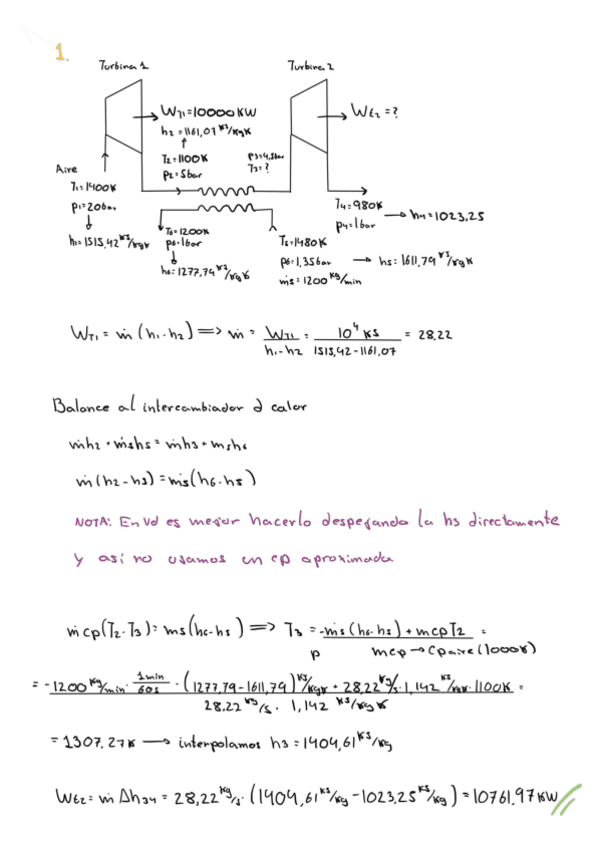 1.
Turbina 1
Turbina 2
ẆT1 = 10000 KW
Wt2 = ?
h2 = 1161,07 KJ/kgK
T2 = 1100K
p2 = 5bar
p3 = 4,5bar
T3 = ?
Aire
T1 = 1400K
p1 = 20bar
h1 = 1515,42 KJ/kgK
T6 = 1200K
p6 = 1bar
h6 = 1277,79 KJ/kgK
T5 = 1480K
p5 = 1,35bar → h5 = 1611,79 KJ/kgK
ṁ5 = 1200 kg/min
T4 = 980K
p4 = 1bar → h4 = 1023,25
ẆT1 = ṁ (h1 - h2) ⟹ ṁ = ẆT1 / h1 - h2 = 10⁴ KJ / 1515,42 - 1161,07 = 28,22
Balance al intercambiador d calor
ṁh2 + ṁ5h5 = ṁh3 + m5h6
ṁ (h2 - h3) = ṁ5 (h6 - h5)
NOTA: En vd es mejor hacerlo despejando la h3 directamente
y así no usamos un cp aproximada
ṁ cp (T2 - T3) = m5 (h6 - h5) ⟹ T3 = -ṁ5 (h6 - h5) + mcpT2 / mcp → cp aire (1000K) =
p
= -1200 kg/min · 1min/60s · (1277,79 - 1611,79) KJ/kgK + 28,22 kg/s · 1,142 KJ/kgK · 1100K / 28,22 kg/s · 1,142 KJ/kgK =
= 1307,27K → interpolamos h3 = 1404,61 KJ/kg
Wt2 = ṁ Δh34 = 28,22 kg/s · (1404,61 KJ/kg - 1023,25 KJ/kg) = 10761,97 KW